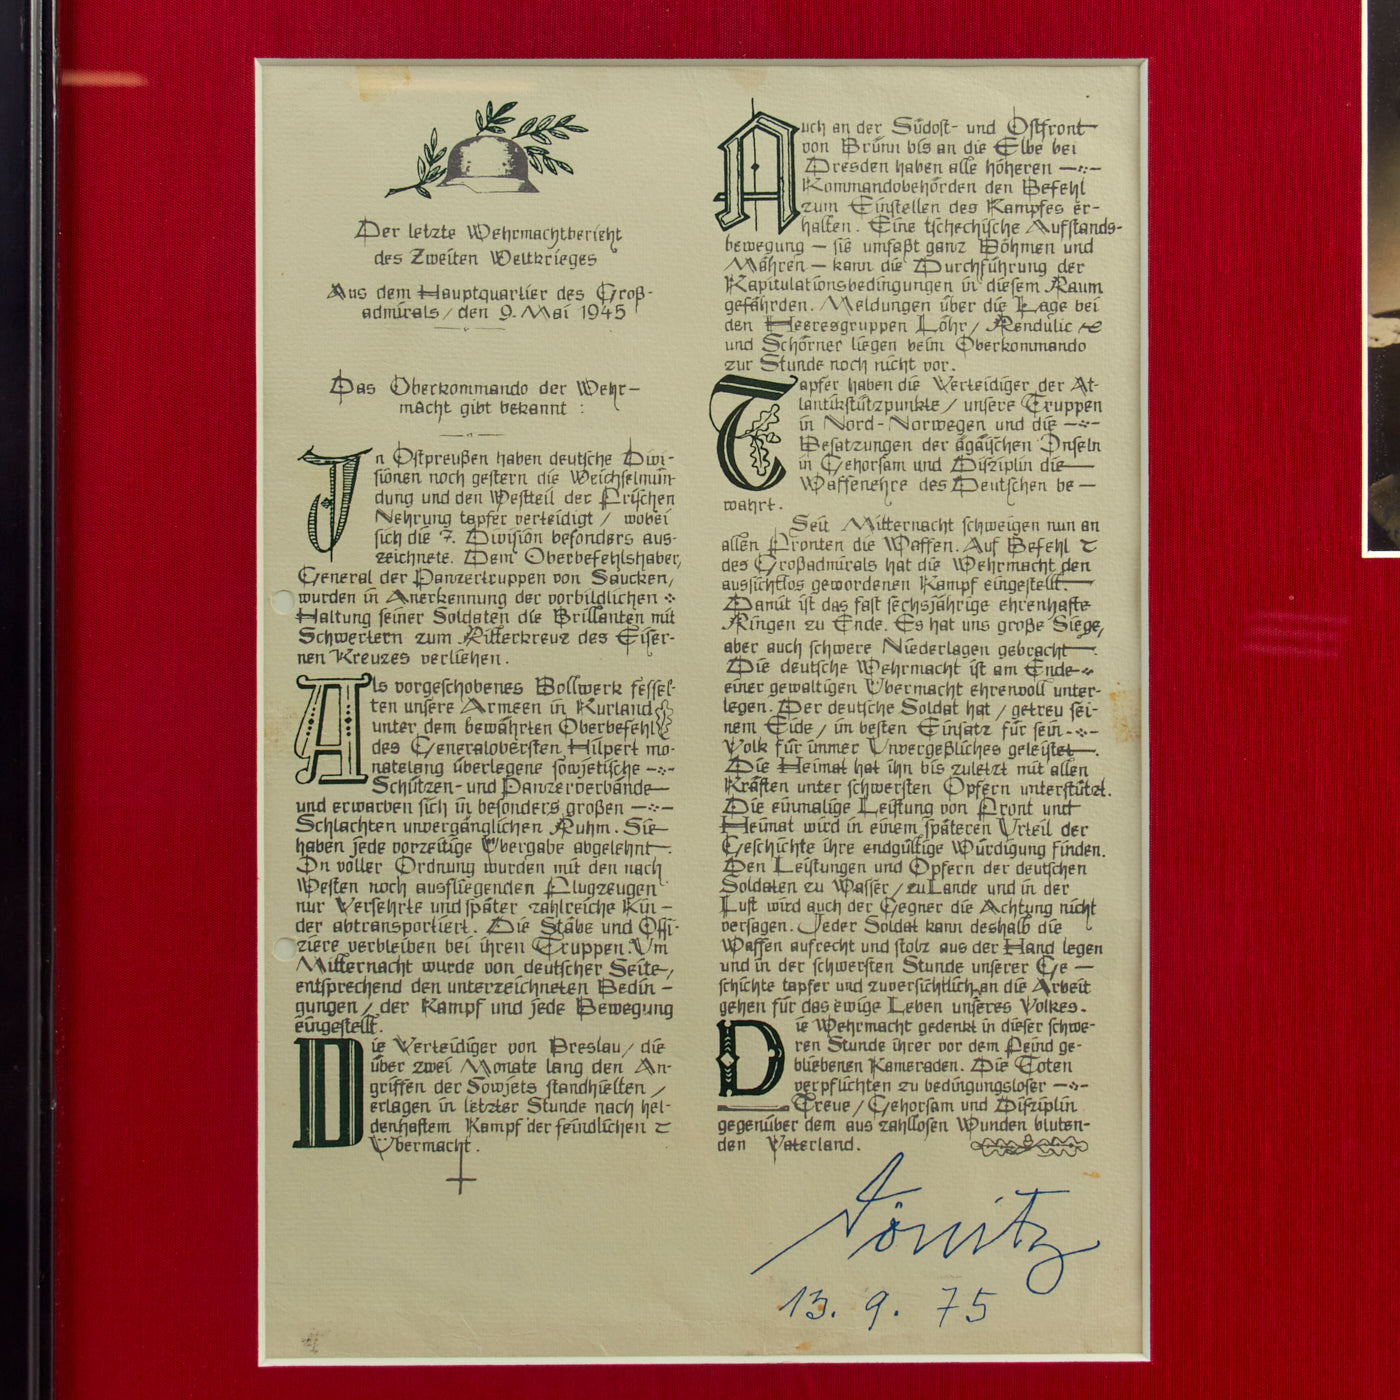 Der letzte Wehrmachtbericht
des Zweiten Weltkrieges
Aus dem Hauptquartier des Groß-
admirals / den 9. Mai 1945
Das Oberkommando der Wehr-
macht gibt bekannt :
In Ostpreußen haben deutsche Divi-
sionen noch gestern die Weichselmün-
dung und den Westteil der Frischen
Nehrung tapfer verteidigt / wobei
sich die 7. Division besonders aus-
zeichnete. Dem Oberbefehlshaber,
General der Panzertruppen von Saucken,
wurden in Anerkennung der vorbildlichen
Haltung seiner Soldaten die Brillanten mit
Schwertern zum Ritterkreuz des Eiser-
nen Kreuzes verliehen.
Als vorgeschobenes Bollwerk fessel-
ten unsere Armeen in Kurland
unter dem bewährten Oberbefehl
des Generalobersten Hilpert mo-
natelang überlegene sowjetische
Schützen- und Panzerverbände
und erwarben sich in besonders großen
Schlachten unvergänglichen Ruhm. Sie
haben jede vorzeitige Übergabe abgelehnt.
In voller Ordnung wurden mit den nach
Westen noch ausfliegenden Flugzeugen
nur Versehrte und später zahlreiche Kin-
der abtransportiert. Die Stäbe und Offi-
ziere verbleiben bei ihren Truppen. Um
Mitternacht wurde von deutscher Seite,
entsprechend den unterzeichneten Bedin-
gungen / der Kampf und jede Bewegung
eingestellt.
Die Verteidiger von Breslau / die
über zwei Monate lang den An-
griffen der Sowjets standhielten /
erlagen in letzter Stunde nach hel-
denhaftem Kampf der feindlichen
Übermacht.
Auch an der Südost- und Ostfront
von Brünn bis an die Elbe bei
Dresden haben alle höheren
Kommandobehörden den Befehl
zum Einstellen des Kampfes er-
halten. Eine tschechische Aufstands-
bewegung – sie umfaßt ganz Böhmen und
Mähren – kann die Durchführung der
Kapitulationsbedingungen in diesem Raum
gefährden. Meldungen über die Lage bei
den Heeresgruppen Löhr / Rendulic
und Schörner liegen beim Oberkommando
zur Stunde noch nicht vor.
Tapfer haben die Verteidiger der At-
lantikstützpunkte / unsere Truppen
in Nord-Norwegen und die
Besatzungen der ägäischen Inseln
in Gehorsam und Disziplin die
Waffenehre des Deutschen be-
wahrt.
Seit Mitternacht schweigen nun an
allen Fronten die Waffen. Auf Befehl
des Großadmirals hat die Wehrmacht den
aussichtlos gewordenen Kampf eingestellt.
Damit ist das fast sechsjährige ehrenhafte
Ringen zu Ende. Es hat uns große Siege,
aber auch schwere Niederlagen gebracht.
Die deutsche Wehrmacht ist am Ende
einer gewaltigen Übermacht ehrenvoll unter-
legen. Der deutsche Soldat hat / getreu sei-
nem Eide / im besten Einsatz für sein
Volk für immer Unvergeßliches geleistet.
Die Heimat hat ihn bis zuletzt mit allen
Kräften unter schwersten Opfern unterstützt.
Die einmalige Leistung von Front und
Heimat wird in einem späteren Urteil der
Geschichte ihre endgültige Würdigung finden.
Den Leistungen und Opfern der deutschen
Soldaten zu Wasser / zu Lande und in der
Luft wird auch der Gegner die Achtung nicht
versagen. Jeder Soldat kann deshalb die
Waffen aufrecht und stolz aus der Hand legen
und in der schwersten Stunde unserer Ge-
schichte tapfer und zuversichtlich an die Arbeit
gehen für das ewige Leben unseres Volkes.
Die Wehrmacht gedenkt in dieser schwe-
ren Stunde ihrer vor dem Feind ge-
bliebenen Kameraden. Die Toten
verpflichten zu bedingungsloser
Treue / Gehorsam und Disziplin
gegenüber dem aus zahllosen Wunden bluten-
den Vaterland.
Dönitz
13. 9. 75